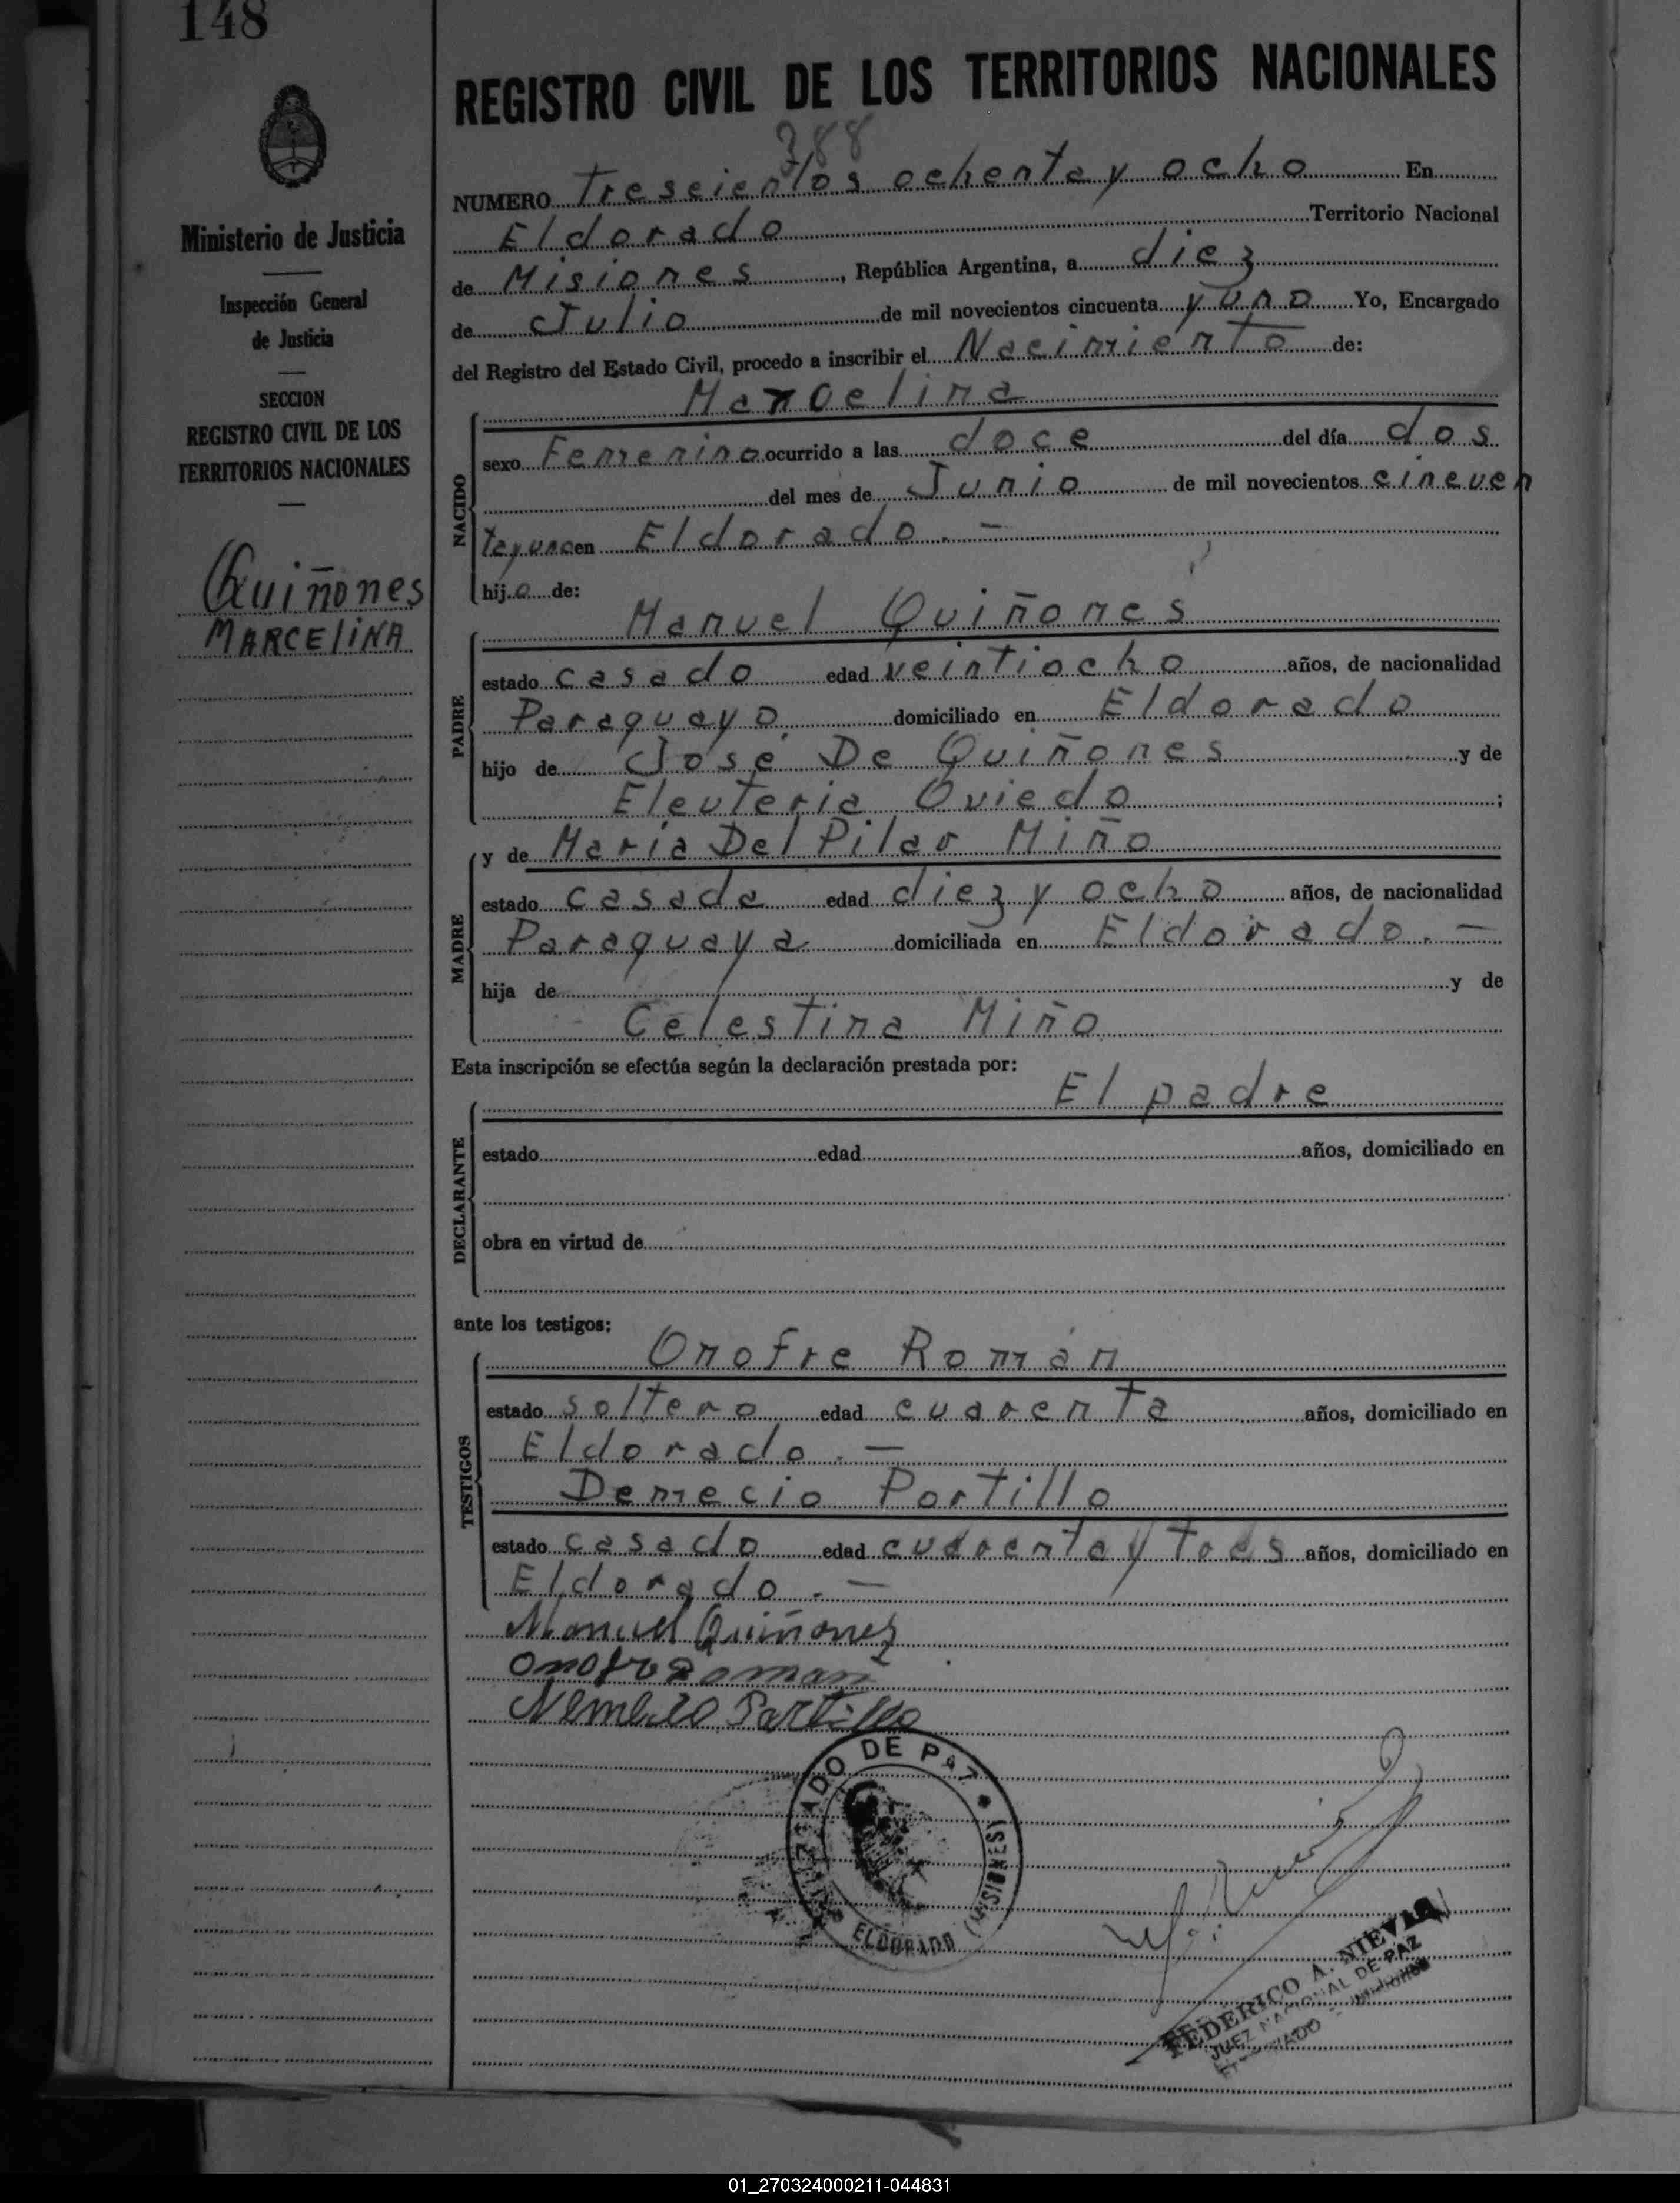 148
REGISTRO CIVIL DE LOS TERRITORIOS NACIONALES
388
NUMERO Trescientos ochenta y ocho En
Eldorado Territorio Nacional
de Misiones, República Argentina, a diez
de Julio de mil novecientos cincuenta y uno Yo, Encargado
del Registro del Estado Civil, procedo a inscribir el Nacimiento de:
Ministerio de Justicia
Inspección General
de Justicia
SECCION
REGISTRO CIVIL DE LOS
TERRITORIOS NACIONALES
Quiñones
MARCELINA
NACIDO
Marcelina
sexo Femenino ocurrido a las doce del día dos
del mes de Junio de mil novecientos cincuen
ta y uno en Eldorado.-
hija de:
PADRE
Manuel Quiñones
estado casado edad veintiocho años, de nacionalidad
Paraguayo domiciliado en Eldorado
hijo de José De Quiñones y de
Eleuteria Oviedo ;
MADRE
y de María Del Pilar Miño
estado casada edad diez y ocho años, de nacionalidad
Paraguaya domiciliada en Eldorado.-
hija de y de
Celestina Miño
Esta inscripción se efectúa según la declaración prestada por:
DECLARANTE
El padre
estado edad años, domiciliado en
obra en virtud de
ante los testigos:
TESTIGOS
Onofre Román
estado soltero edad cuarenta años, domiciliado en
Eldorado.-
Demecio Portillo
estado casado edad cuarenta y tres años, domiciliado en
Eldorado.-
Manuel Quiñonez
Onofre Roman
Portillo
JUZGADO DE PAZ
ELDORADO (MISIONES)
FEDERICO A. NIEVA
JUEZ NACIONAL DE PAZ
ELDORADO - MISIONES
01_270324000211-044831